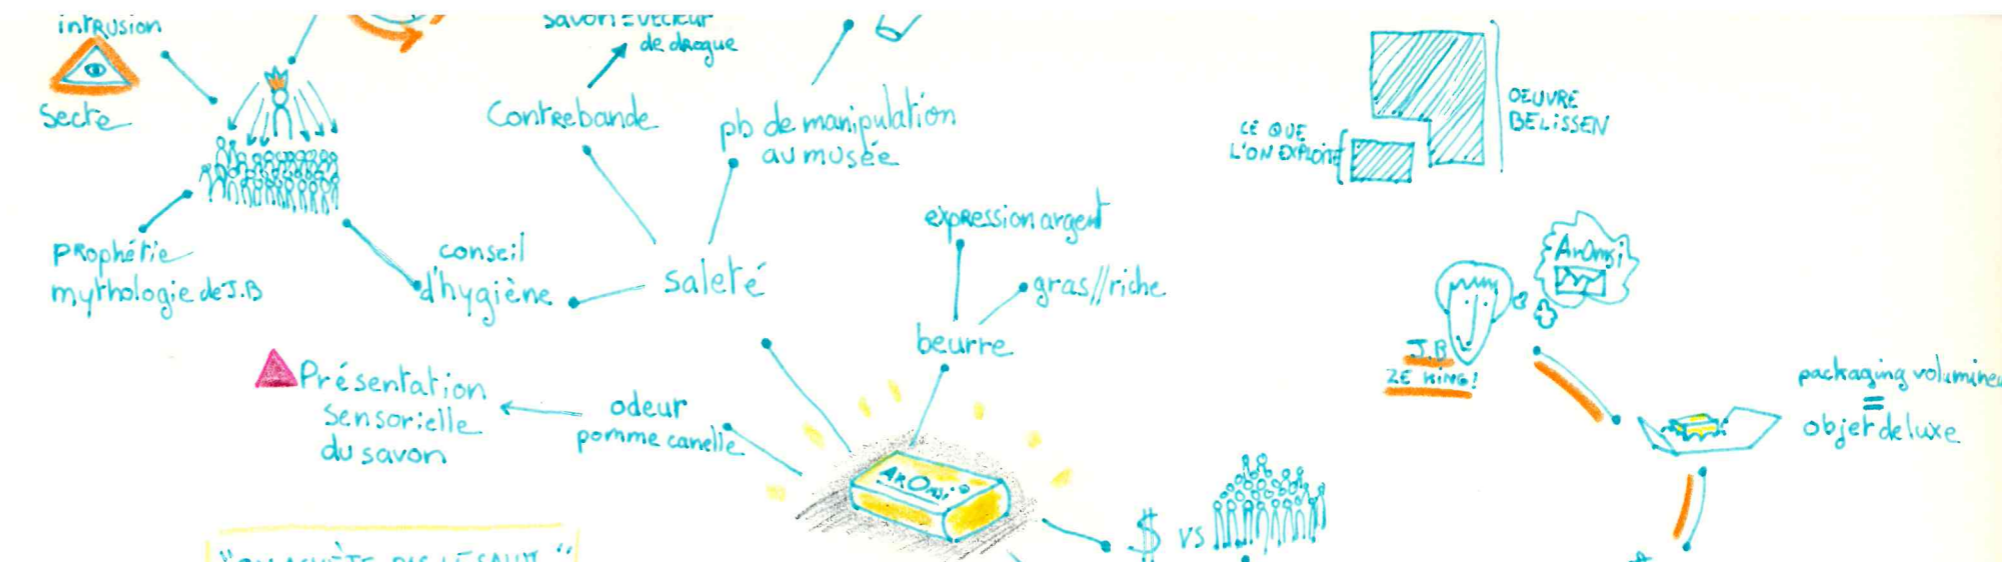 intrusion
secte
savon = vecteur
de drogue
Contrebande
pb de manipulation
au musée
OEUVRE
BELISSEN
CE QUE
L'ON EXPLOITE
prophétie
mythologie de J.B
conseil
d'hygiène
saleté
expression argent
gras//riche
beurre
ArOmsi
J.B
ZE KING!
packaging volumineu
=
objet de luxe
Présentation
sensorielle
du savon
odeur
pomme canelle
ArOmsi
$ vs